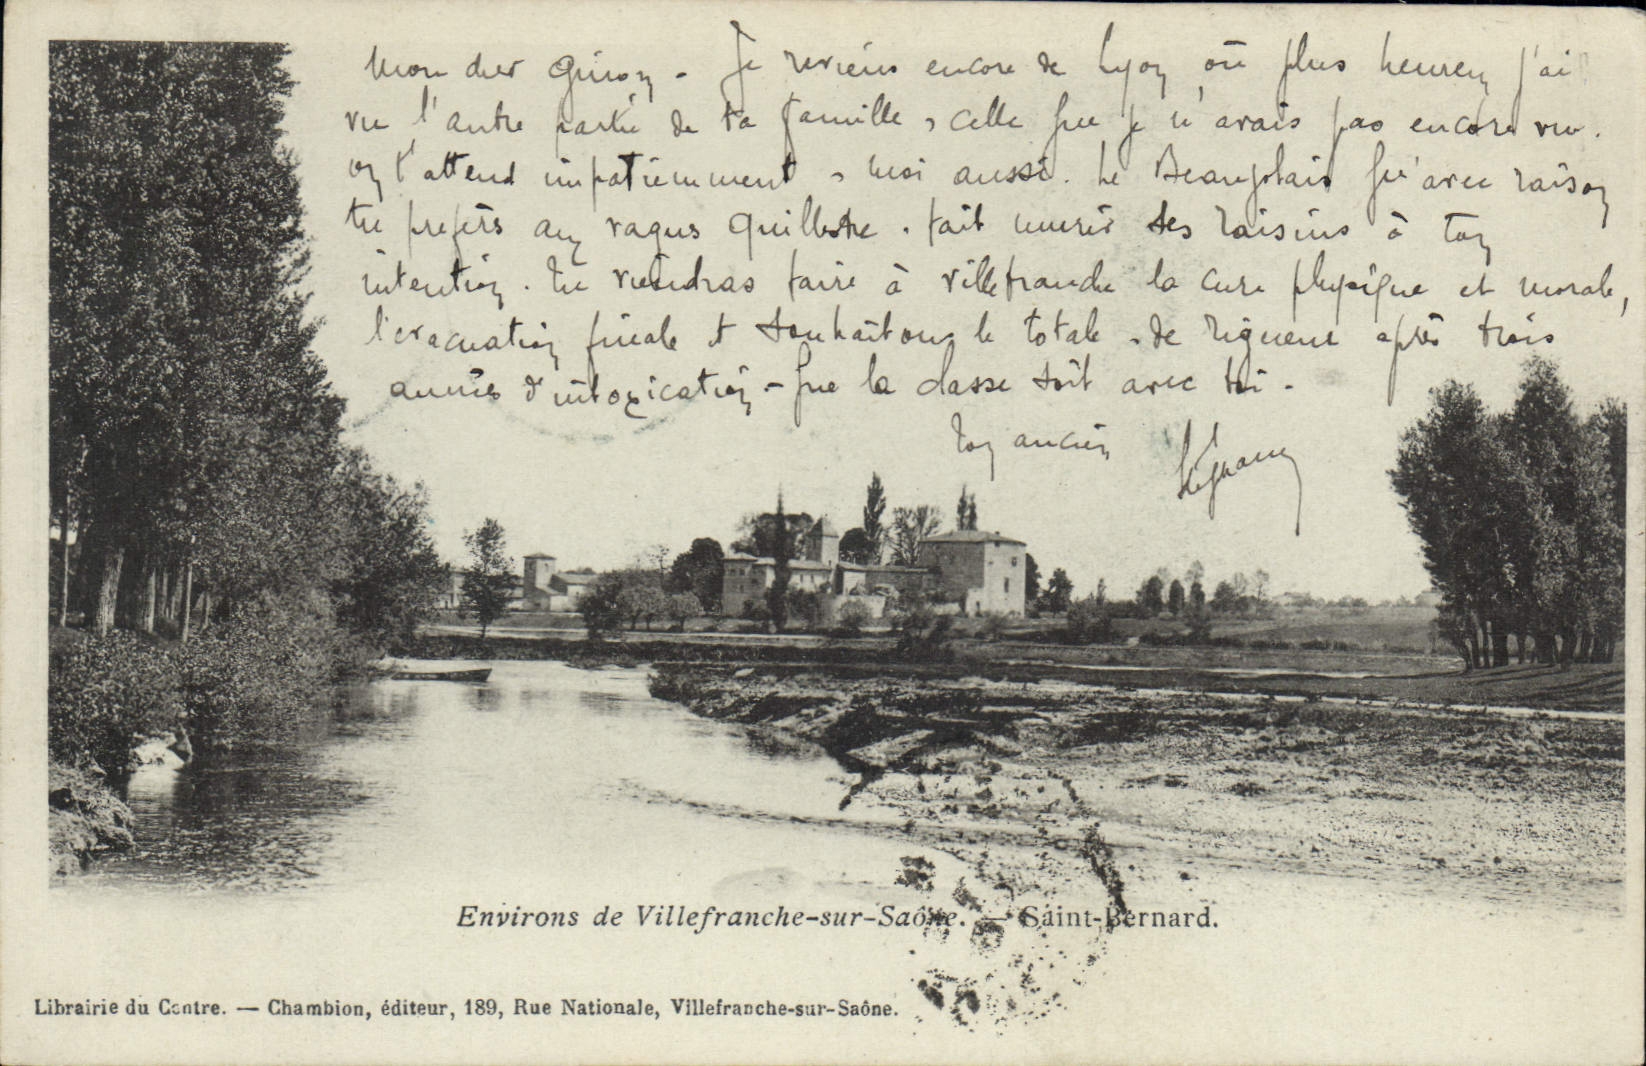 Mon cher Guison - Je reviens encore de Lyon où plus heureux j'ai
vu l'autre partie de ta famille, celle que je n'avais pas encore vue.
on t'attend impatiemment, moi aussi. Le Beaujolais qu'avec raison
tu prefères aux vagues quillestre. fait murir ses raisins à ton
intention. Tu viendras faire à villefranche la cure physique et morale,
l'evacuation finale et souhaitons le totale, de rigueur après trois
années d'intoxication - que la classe soit avec toi -
Ton ancien
Environs de Villefranche-sur-Saône. — Saint-Bernard.
Librairie du Centre. — Chambion, éditeur, 189, Rue Nationale, Villefranche-sur-Saône.